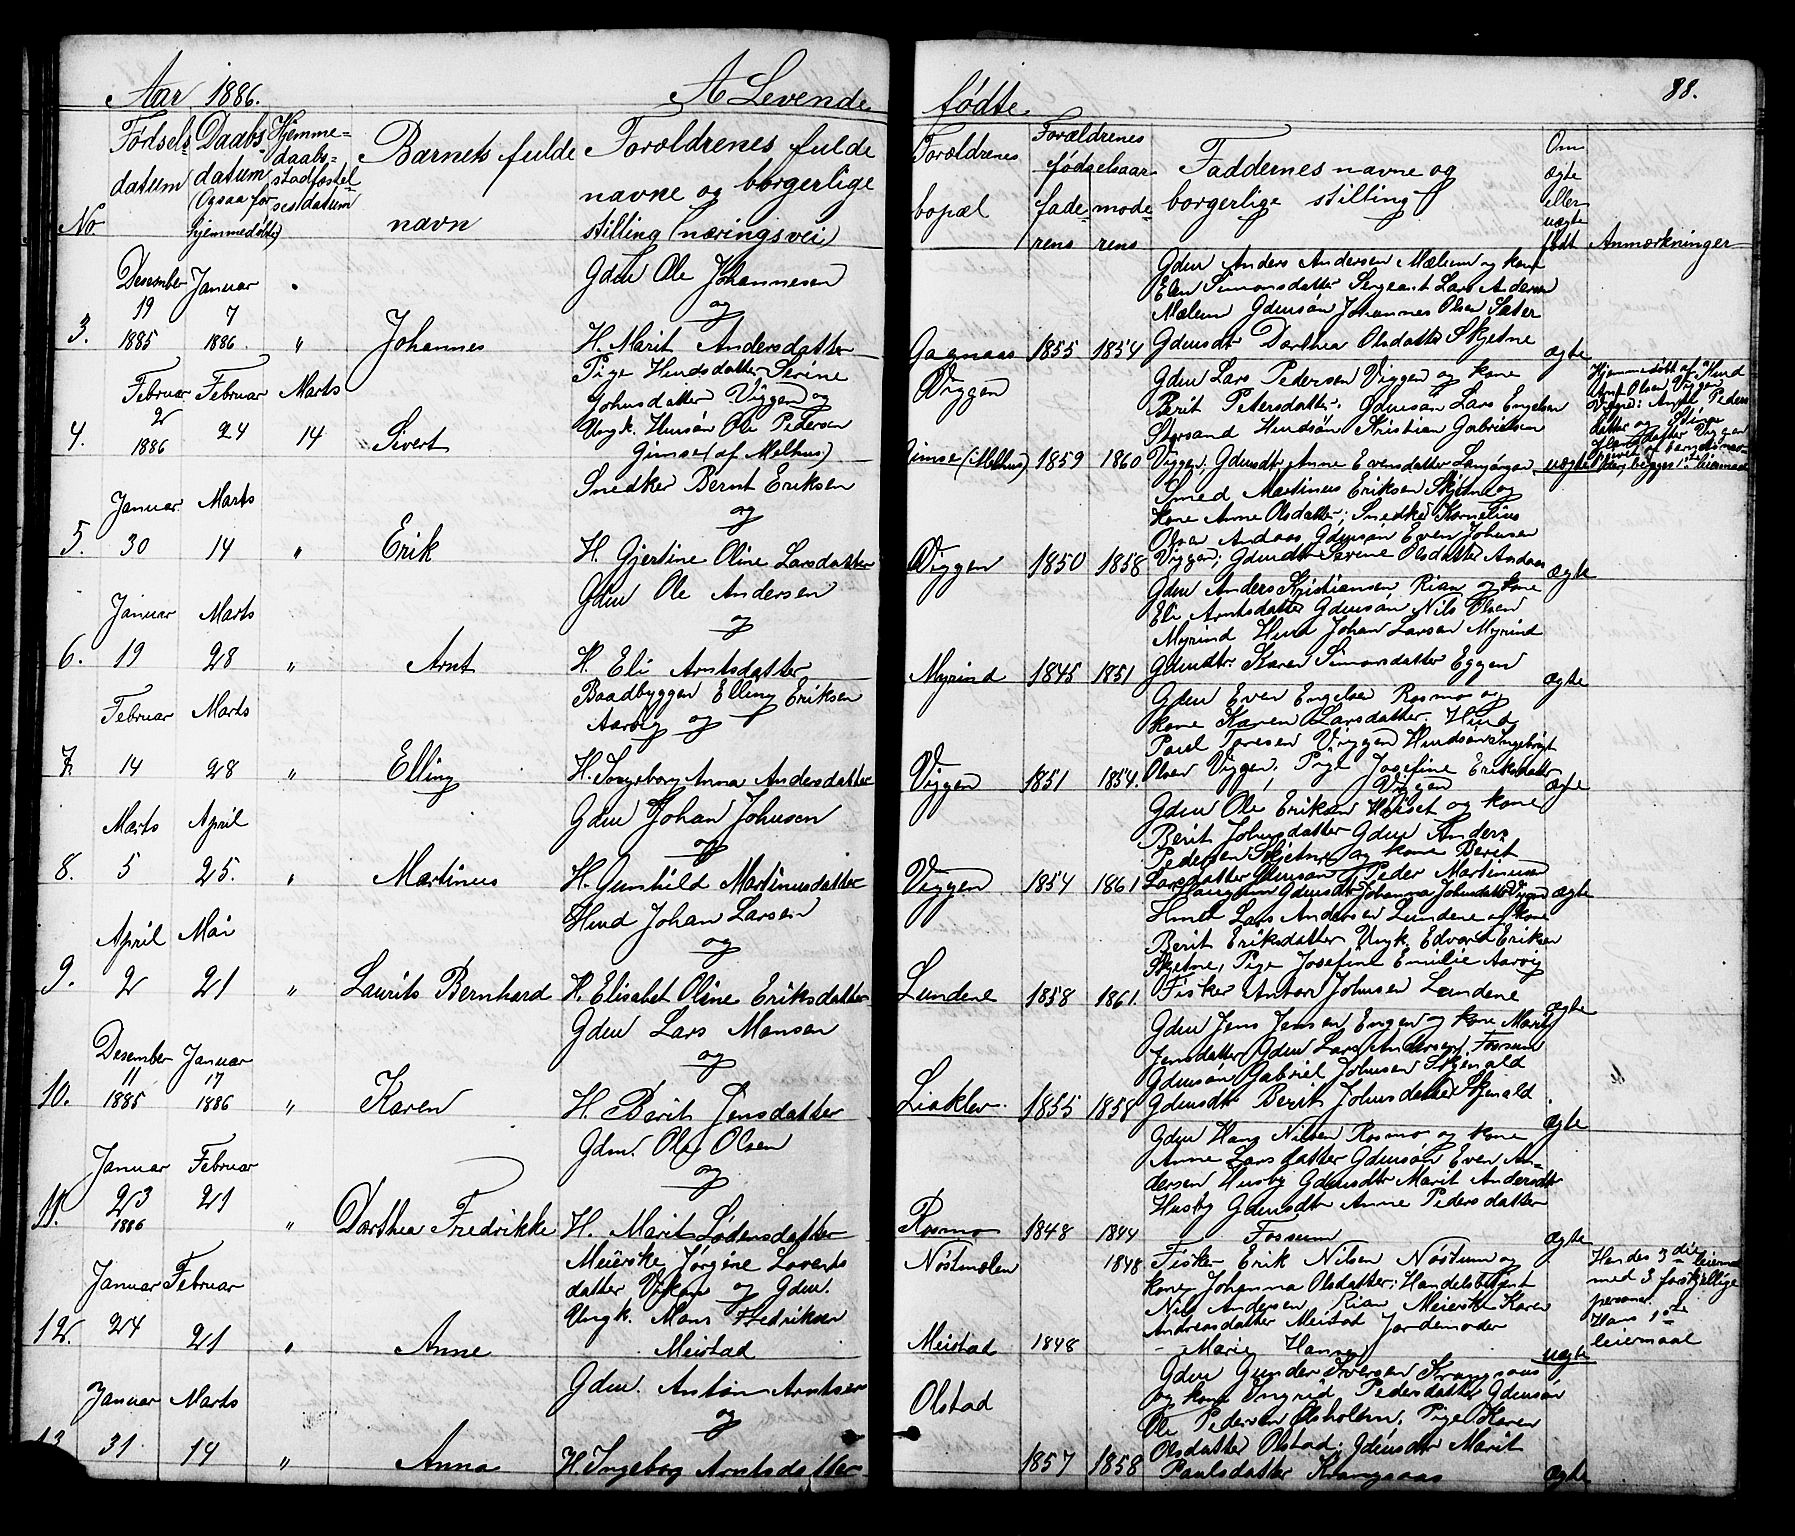 Aar 1886.
A Levende
No
Fødsels datum
Daabs datum (Ogsaa for hjemmedøbte)
Hjemme-daabs-stadfæstel-sesdatum
Barnets fulde navn
Forældrenes fulde navne og borgerlige stilling (næringsvei)
3.
Desember 19 1885
Januar 7 1886.
"
Johannes
Gdm Ole Johannesen
og
H. Marit Andersdatter
4.
Februar 2 1886
Februar 24
Marts 14
Sivert
Pige Hmdsdatter Serine
Johnsdatter Viggen og
Ungk. Hmsøn Ole Pedersen
Gimse (af Melhus)
5.
Januar 30
Marts 14
"
Erik
Snedker Bernt Eriksen
og
H. Gjertine Oline Larsdatter
6.
Januar 19
Marts 28
"
Arnt
Gdm Ole Andersen
og
H. Eli Arntsdatter
7.
Februar 14
Marts 28
"
Elling
Baadbygger Elling Eriksen
Aarvig og
H. Ingeborg Anna Andersdatter
8.
Marts 5
April 25.
"
Martinus
Gdm Johan Johnsen
og
H. Gunhild Martinusdatter
9.
April 2
Mai 21
"
Laurits Bernhard
Hmd Johan Larsen
og
H. Elisabet Oline Eriksdatter
10.
Desember 11 1885
Januar 17 1886
"
Karen
Gdm Lars Monsen
og
H. Berit Jensdatter
11.
Januar 23 1886
Februar 21
"
Dorthea Fredrikke
Gdm. Ole Olsen
og
H. Marit
12.
Januar 24
Februar 21
"
Anne
Meierske Jørgine
datter og Gdm.
Ungk. Mons Fredriksen
Meistad
13
Januar 31
Marts 14
"
Anna
Gdm. Anton Arntsen
og
H. Ingeborg Arntsdatter
fødte
88.
Forældrenes bopæl
Forældrenes fødselsaar
faderens
moderens
Faddernes navne og borgerlige stilling
Om ægte eller uægte født
Anmærkninger
Gagnaas
1855
1854
Gdm Anders Andersen Mælum og kone
Elen Simonsdatter Sergeant Lars Andersen
Mælum Gdmsøn Johannes Olsen Sæter
Gdmsdtr Dorthea Olsdatter Skjetne
ægte
Viggen
Gimse (Melhus)
1859
1860
Gdm Lars Pedersen Viggen og kone
Berit Petersdatter. Gdmsøn Lars Engelsen
Storsand Hmdsøn Kristian Gabrielsen
Viggen; Gdmsdtr Anne Evensdatter
uægte
Hjemmedøbt af Hmd
Arnt Olsen Viggen
Viggen
1850
1858
Smed Martinus Eriksen Skjetne og
kone Anne Olsdatter; Snedker Kornelius
Olsen Andaas Gdmsøn Even Johnsen
Viggen; Gdmsdtr Serine Olsdatter Andaas
ægte
Myrind
1845
1851
Gdm Anders Kristiansen Rian og kone
Eli Arntsdatter Gdmsøn Nils Olsen
Myrind Hmd Johan Larsen Myrind
Gdmsdtr Karen Simonsdatter Eggen
ægte
Viggen
1851
1854.
Gdm Even Engelsen Rosmo og
kone Karen Larsdatter. Hmd
Paul Toresen Viggen Hmdsøn Ingebrigt
Olsen Viggen. Pige Josefine Eriksdatter
Viggen
ægte
Viggen
1854
1861
Gdm Ole Eriksen og kone
Berit Johnsdatter Gdm Anders
Pedersen Skjetne og kone Berit
Larsdatter Gdmsøn Peder Martinusen
Haugum Gdmsdtr Johanna Johnsdatter Viggen
ægte
Lundene
1858
1861.
Hmd Lars Andersen Lundene og kone
Berit Eriksdatter Ungk. Edvard Eriksen
Skjetne, Pige Josefine Emilie Aarvig
Fisker Anton Johnsen Lundene
ægte
Liaklev.
1855
1858
Gdm Jens Jensen Engen og kone Marit
Jensdatter Gdm Lars Andersen Fossum
Gdmsøn Gabriel Johnsen Skjenald
Gdmsdtr Berit Johnsdatter Skjenald
ægte
Rosmo
1848
1844
Gdm Hans Nilsen Rosmo og kone
Anne Larsdatter Gdmsøn Even An-
dersen Husby Gdmsdtr Marit Andersdtr
Husby Gdmsdtr Anne Pedersdatter
Fossum
ægte
Nøstmælen
1848
Meistad
1848
Fisker Erik Nilsen Nøstum og
kone Johanna Olsdatter; Handelsbetjent
Nils Andersen Rian Meiersk Karen
Andreasdatter Meistad Jordemoder
Marie Hansen
uægte
Hendes 3die leiermaal
med 3 forskjellige
personer.
Hans 1ste
leiermaal
Olstad
1857
1858
Gdm Gunder Iversen Krangsaas
og kone Ingrid Pedersdatter Gdmsøn
Ole Pedersen Olsholm, Pige Karen
Olsdatter Olstad; Gdmsdtr Marit
Paulsdatter Krangsaas
ægte